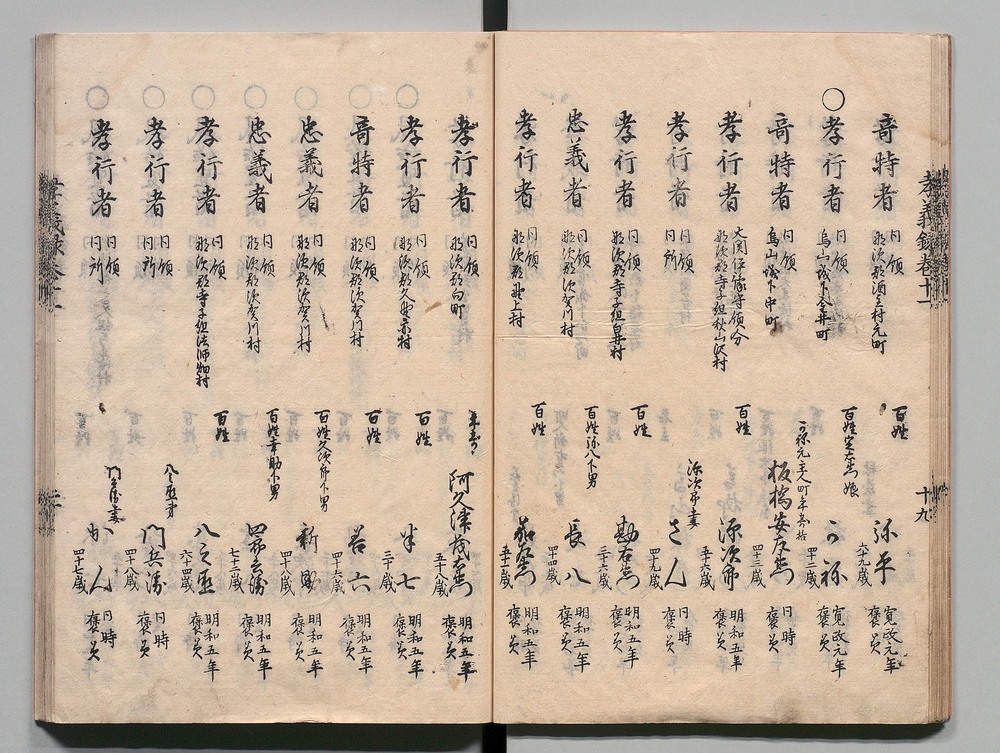 奇特者 同領 那須郡酒主村元町 百姓 弥平 六十九歳 寛政元年 褒美
○孝行者 同領 烏山城下金井町 百姓定右衛門娘 うね 四十二歳 寛政元年 褒美
奇特者 同領 烏山城下中町 うね元主人町年寄格 板橋安左衛門 四十三歳 同時 褒美
孝行者 大関伊豫守領分 那須郡寺子組秋山沢村 百姓 源次郎 五十六歳 明和五年 褒美
孝行者 同領 同所 源次郎妻 さん 四十九歳 同時 褒美
孝行者 同領 那須郡寺子組白井村 百姓 勘右衛門 三十六歳 明和五年 褒美
忠義者 同領 那須郡須賀川村 百姓弥八下男 長八 四十二歳 明和五年 褒美
孝行者 同領 那須郡 上村 百姓 五十一歳 明和五年 褒美
孝義録巻十一 十九
孝行者 同領 那須郡向町 年寄 阿久津茂右衛門 五十八歳 明和五年 褒美
○孝行者 同領 那須郡久野又村 百姓 半七 三十歳 明和五年 褒美
○奇特者 同領 那須郡須賀川村 百姓 岩六 四十六歳 明和五年 褒美
○忠義者 同領 那須郡須賀川村 百姓久次郎下男 新助 四十八歳 明和五年 褒美
○忠義者 同領 那須郡須賀川村 百姓幸助下男 四郎兵衛 七十二歳 明和五年 褒美
○孝行者 同領 那須郡寺子組法師畑村 百姓 八之丞 六十四歳 明和五年 褒美
○孝行者 同領 同所 八之丞弟 門兵衛 四十八歳 同時 褒美
○孝行者 同領 同所 門兵衛妻 かん 四十七歳 同時 褒美
孝義録巻十一